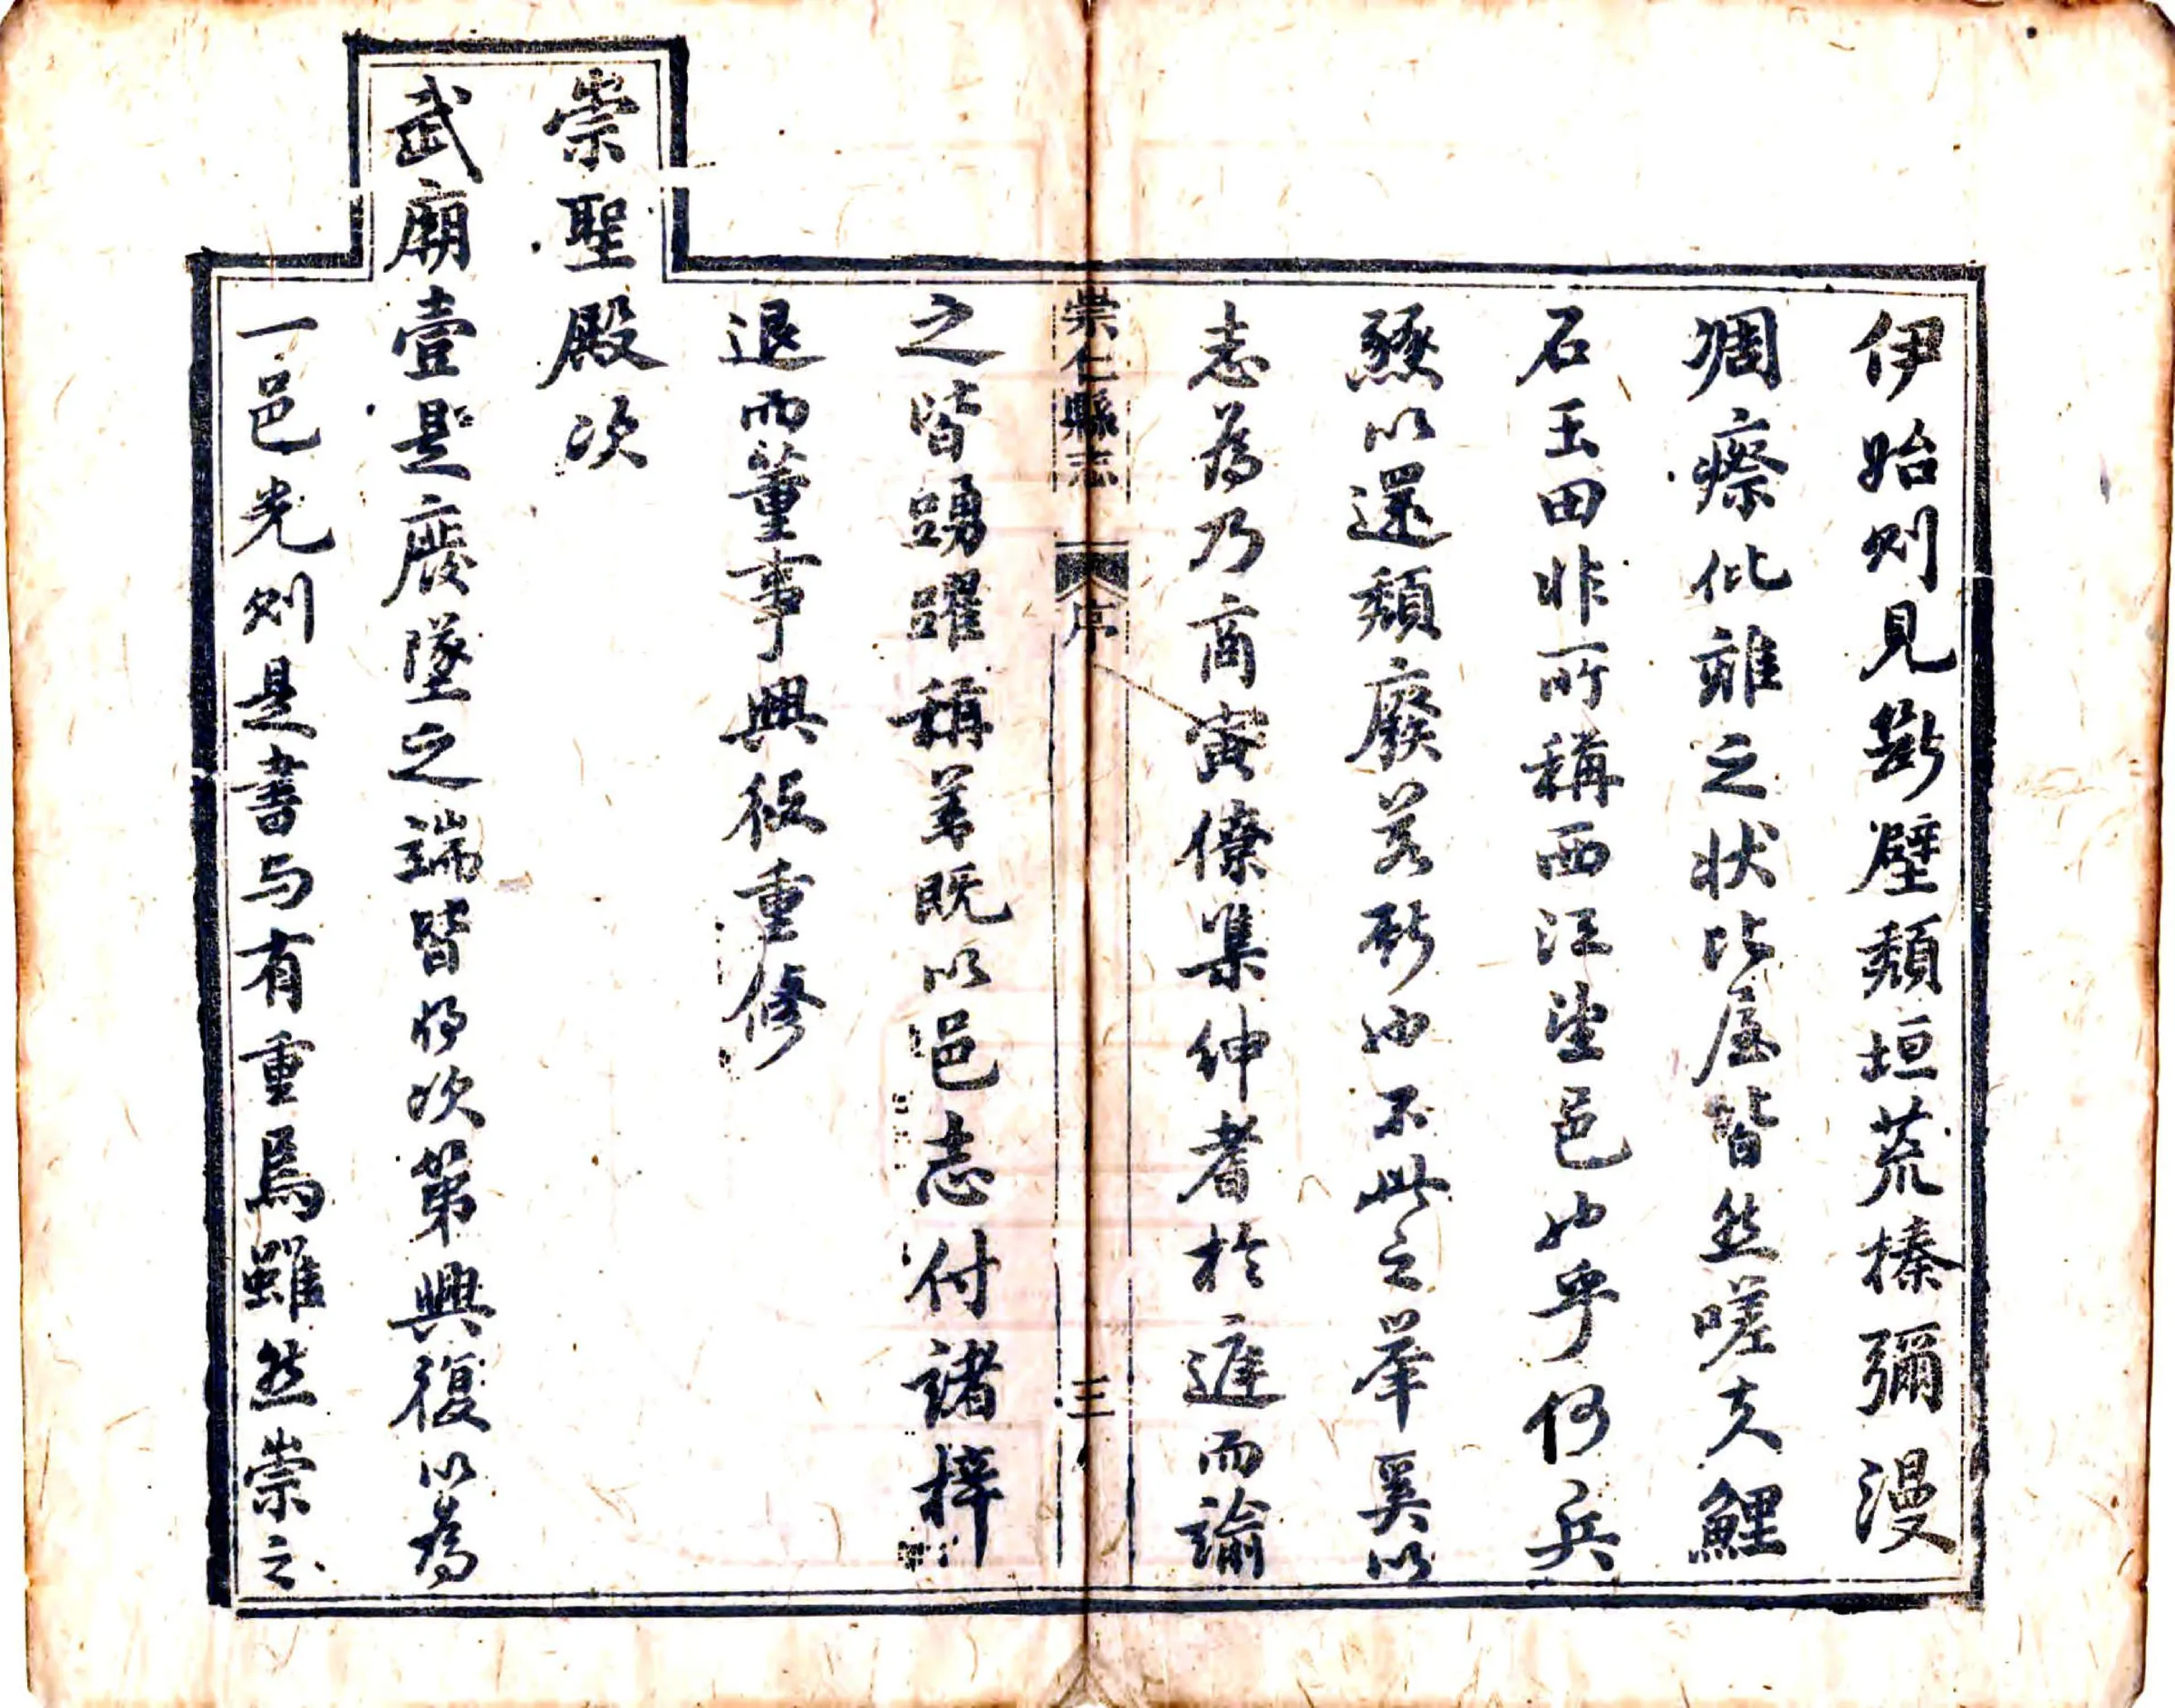 伊始则見斷壁頽垣荒榛彌漫
凋瘵仳離之状比屋皆然嗟夫鯉
石玉田非所稱西江望邑也乎何兵
燹以還頽廢若斯也不此之举奚以
志為乃商寅僚集绅耆於進而諭
崇仁縣志
序
三
之皆踴躍稱善既以邑志付諸梓
退而董事興役重修
崇聖殿次
武廟壹是廢墜之端皆将次第興復以為
一邑光则是書与有重焉雖然崇之